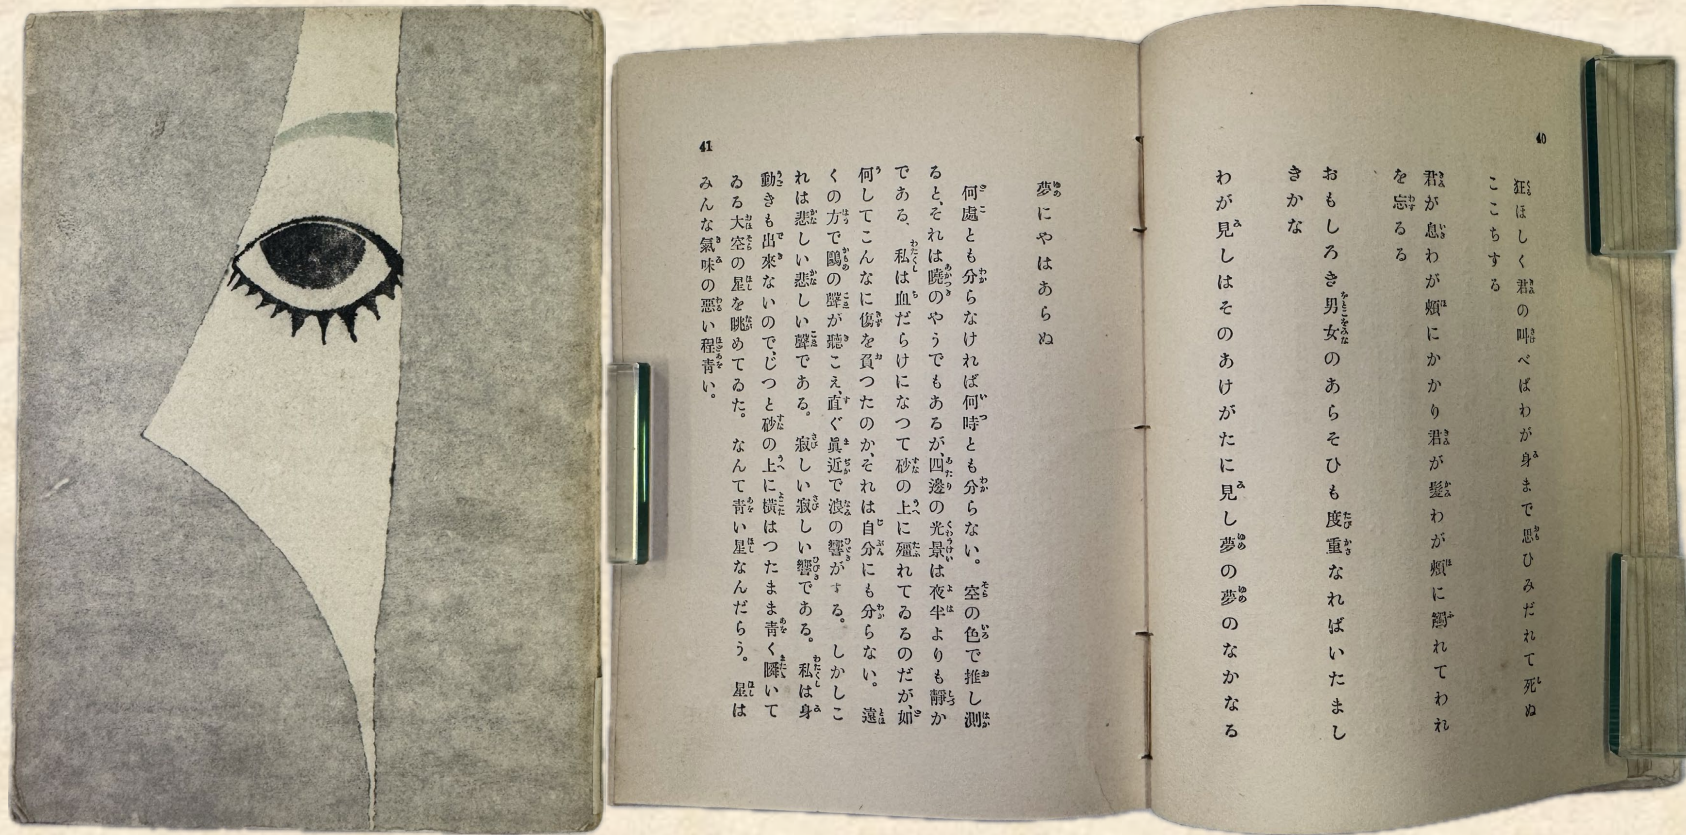 40
狂ほしく君の叫べばわが身まで思ひみだれて死ぬ
ここちする
君が息わが頬にかかり君が髪わが頬に觸れてわれ
を忘るる
おもしろき男女のあらそひも度重なればいたまし
きかな
わが見しはそのあけがたに見し夢の夢のなかなる
夢にやはあらぬ
何處とも分らなければ何時とも分らない。空の色で推し測
ると、それは曉のやうでもあるが、四邊の光景は夜半よりも靜か
である、私は血だらけになつて砂の上に殪れてゐるのだが、如
何してこんなに傷を負つたのか、それは自分にも分らない。遠
くの方で鷗の聲が聽こえ、直ぐ眞近で浪の響がする。しかしこ
れは悲しい悲しい聲である。寂しい寂しい響である。私は身
動きも出來ないので、じつと砂の上に橫はつたまま青く瞬いて
ゐる大空の星を眺めてゐた。なんて青い星なんだらう。星は
みんな氣味の惡い程青い。
41